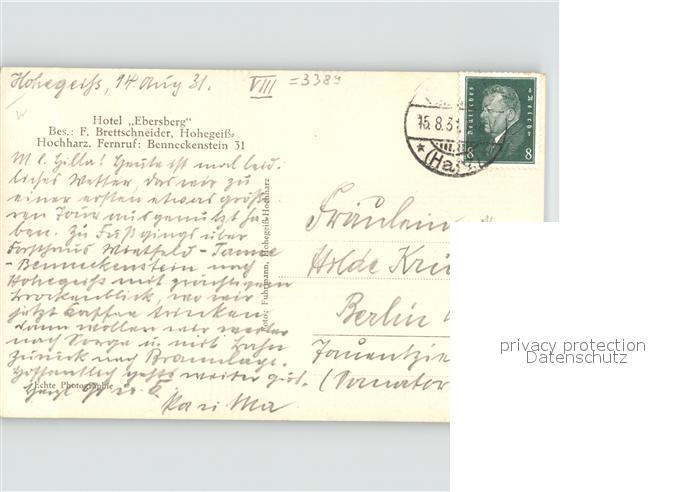 Hohegeiß, 14. Aug 31. VIII =3389
Hotel „Ebersberg"
Bes.: F. Brettschneider, Hohegeiß
Hochharz. Fernruf: Benneckenstein 31
M. l. Hilla! Heute ist mal leid-
liches Wetter, das wir zu
einer ersten etwas größe-
ren Tour ausgenutzt ha-
ben. Zu Fuß gings über
Forsthaus Wietfeld - Tanne
- Benneckenstein nach
Hohegeiß mit prächtigem
Brockenblick, wo wir
jetzt Kaffee trinken
dann wollen wir weiter
nach Sorge u. mit Bahn
zurück nach Braunlage.
Hoffentlich gehts weiter gut.
Herzl.
Pa u Ma
Echte Photographie
Fuhrmann, Hohegeiß-Hochharz
Deutsches Reich
8 8
15.8.31
(Harz)
Fräulein
Hilde
Berlin
Tauentzie